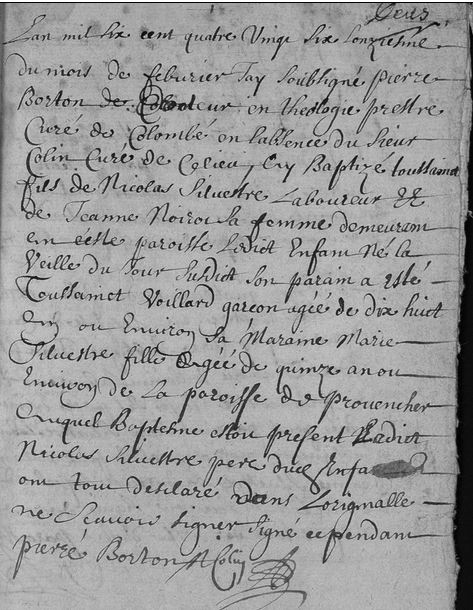 Deux
Lan mil six cent quatre Vingt six Lonziesme
du mois de feburier Jay soubsigné pierre
Borton docteur en theologie prestre
Curé de Colombé en labsence du Sieur
Colin Curé de Ceiieu, Ey Baptizé toussainct
fils de Nicolas Silvestre Laboureur et
de Jeanne Noirot sa femme demeurant
en ceste paroisse Ledict Enfant Né la
Veille du Jour susdict son parain a esté
Toussainct Voillard garcon agée de dix huict
an ou Environ sa Maraine Marie
Silvestre fille agée de quinze an ou
Environ de La paroisse de prouencher
auquel Baptesme estoit present Ledict
Nicolas Silvestre pere dud Enfant
ont tout desclaré dans Lorignalle
ne Scauoir signer signé cependant
pierre Borton N Colin